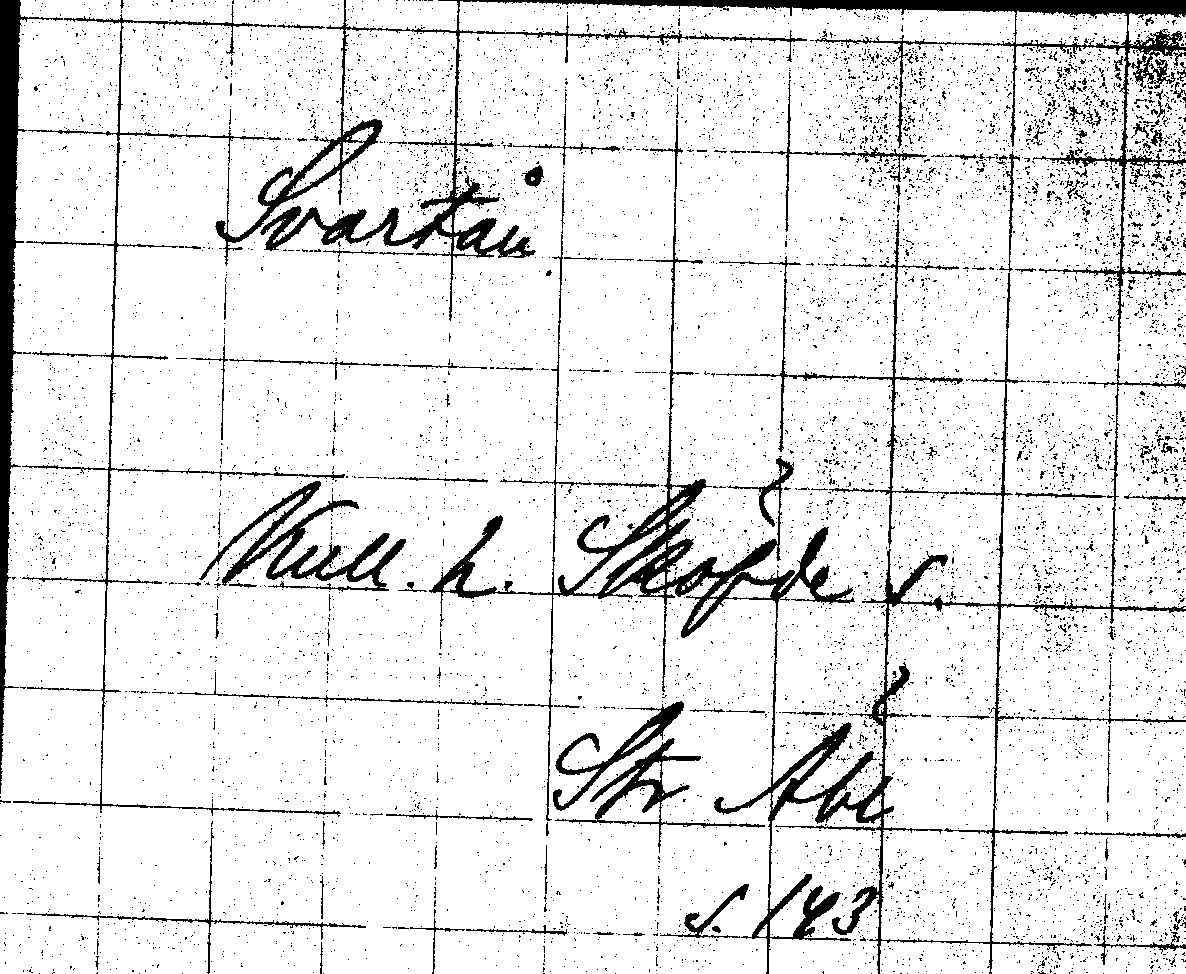 Svartån
Kull. h. Sköfde s.
Str. Åbe
s. 143